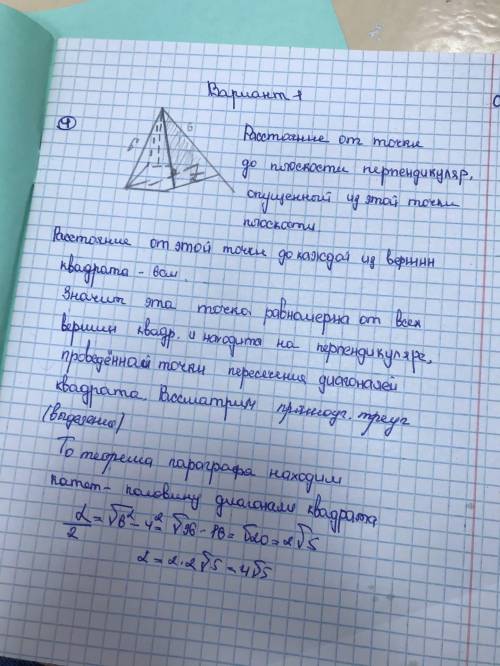 Вариант 1
4
6
Расстояние от точки
до плоскости перпендикуляр,
опущенный из этой точки
плоскости.
Расстояние от этой точки до каждой из вершин
квадрата - 6см.
Значит эта точка равномерна от всех
вершин квадр. и находита на перпендикуляре,
проведённый точки пересечения диагоналей
квадрата. Рассматрим прямоуг. треуг
(выделены)
То теорема парографа находим
катет - половину диагонали квадрата
d/2 = √6² - 4² = √36 - 16 = √20 = 2√5
d = 2·2√5 = 4√5